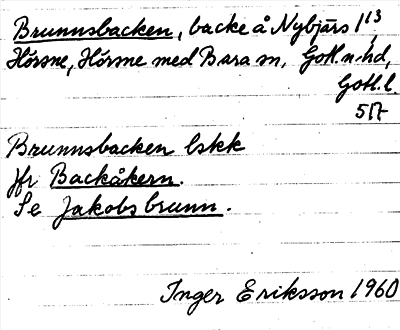 Brunnsbacken, backe å Nybjärs 1¹³,
Hörsne, Hörsne med Bara sn, Gotl. n. hd,
Gotl. l.
Brunnsbacken lskk
Jfr Backåkern.
Se Jakobsbrunn.
Inger Eriksson 1960